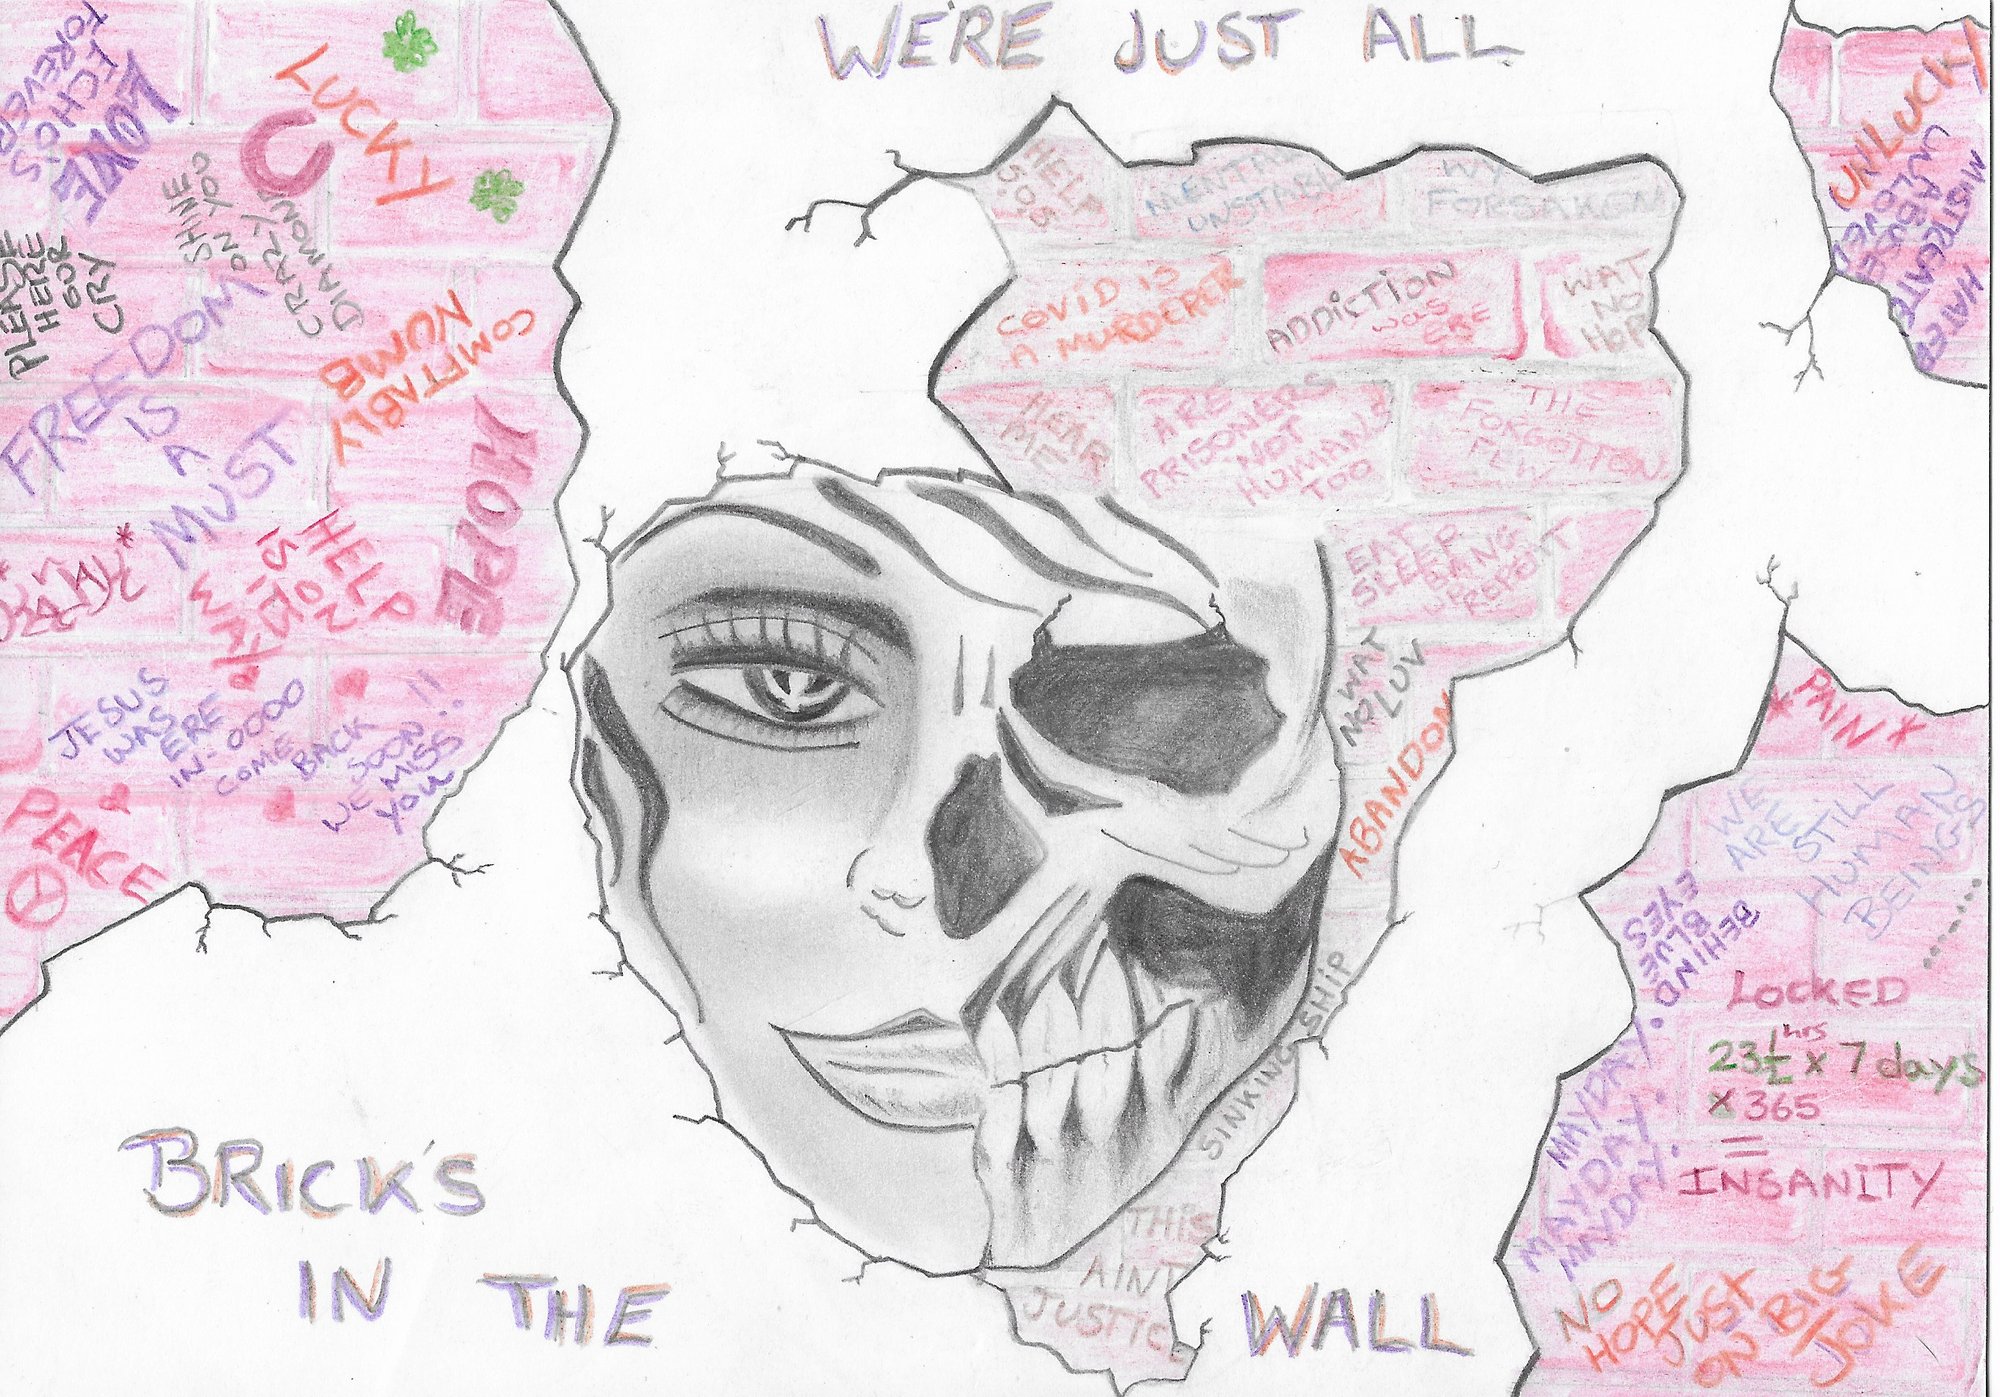 WE'RE JUST ALL
FOREVER
ECHO'S
LOVE
LUCKY
SHINE
ON YOU
CRARY
DIAMOND
PLEASE
HERE
OUR
CRY
FREEDOM
IS
A
MUST
COMFTABLY
NOMB
HOPE
HELP
ON
IS
WAY
JESUS
WAS
ERE
IN-0000
COME
BACK
SOON !!
WE MISS
YOU
PEACE
HELP
S.O.S
UNSTABL
FORSAKEN
COVID IS
A MURDERER
ADDICTION
WAS
ERE
WAT
NO
HOP
HEAR
ME
ARE
PRISONERS
NOT
HUMANS
TOO
THE
FORGOTTEN
FEW
EAT
SLEEP
BANG
UP
REPEAT
WAT
NO LUV
ABANDON
SINKING SHIP
THIS
AINT
JUSTICE
UNLUCKY
UNLOVED
MISTREATED
HATED
*PAIN*
WE
ARE
STILL
HUMAN
BEINGS
BEHIND
BLUE
EYES
LOCKED
23½ hrs x 7 days
x 365
=
INSANITY
MAYDAY.
MAYDAY.
MAYDAY.
NO
HOPE
JUST
ON BIG
JOKE
BRICK'S
IN THE WALL